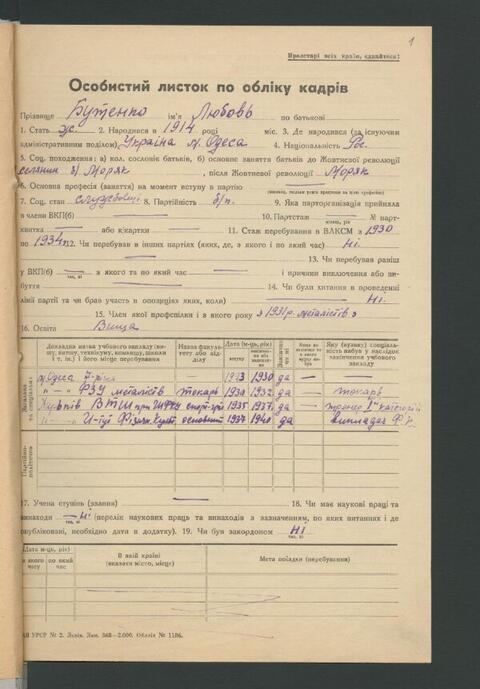 1
Пролетарі всіх країн, єднайтеся!
Особистий листок по обліку кадрів
Прізвище Бутенко ім'я Любовь по батькові —
1. Стать ж. 2. Народився в 1914 році міс. 3. Де народився (за існуючим
адміністративним поділом) Україна м. Одеса 4. Національність Рос.
5. Соц. походження: а) кол. сословік батьків, б) основне заняття батьків до Жовтневої революції
селянин б) Моряк, після Жовтневої революції Моряк
6. Основна професія (заняття) на момент вступу в партію —
7. Соц. стан службовці 8. Партійність б/п. 9. Яка парторганізація прийняла
в члени ВКП(б) — 10. Партстаж — № парт-
квитка — або к/картки — 11. Стаж перебування в ВЛКСМ з 1930
по 1934 р. 12. Чи перебував в інших партіях (яких, де, з якого і по який час) Ні.
13. Чи перебував раніш
у ВКП(б) — з якого та по який час — і причини виключення або ви-
буття — 14. Чи були хитання в проведенні
лінії партії та чи брав участь в опозиціях яких, коли) Ні.
15. Член якої профспілки і з якого року з 1931 р. металістів з
16. Освіта Вища
Докладна назва учбового закладу (ви-
шу, втишу, технікуму, комвишу, школи
і т. ін.) і його місце перебування
Назва факуль-
тету або від-
ділу
Дата (м-ць, рік)
вступу
Яку (вузьку) спеціаль-
ність набув у наслідок
закінчення учбового
закладу
м. Одеса — 1930 да — —
" — " ФЗУ металістів токарь 1930 1932 да — токарь
Харьків ВТШ при 1935 1937 да — тренер категорії
" — " Фізич. основний 1937 1940 да викладач Ф.
Партійно-
політична
17. Учена ступінь (звання) — 18. Чи має наукові праці та
винаходи — ні (перелік наукових праць та винаходів з зазначенням, по яких питаннях і де
опубліковані, необхідно дати в додатку). 19. Чи був закордоном Ні
Дата (м-ць, рік)
з якого
часу
по який
час
В якій країні
(вказати місто, місце)
Мета поїздки (перебування)
УРСР № 2. Львів. Зам. 568—2.000. Обліт № 1186.